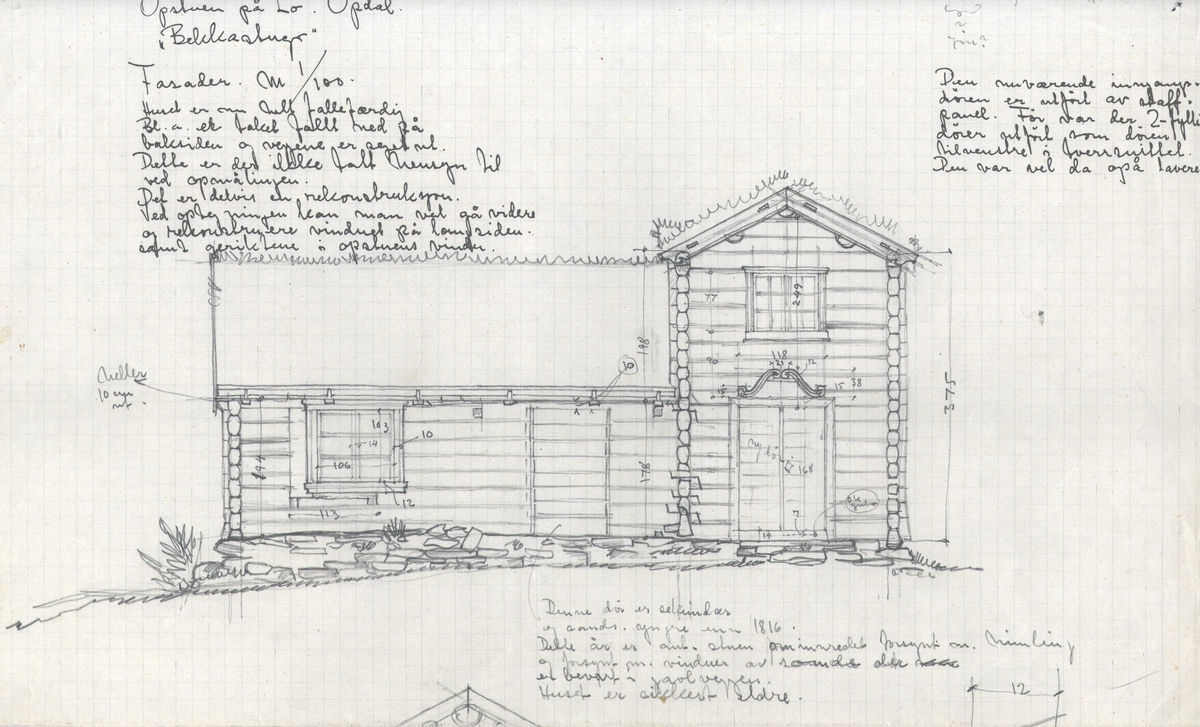 Opstuen på Lo. Opdal.
"Bekkastugu"
Fasader. M 1/100.
Huset er nu helt fallefærdig
Bl.a. er taket fallt ned på
baksiden og veggene er seget ut.
Dette er det ikke tatt hensyn til
ved opmålingen.
Det er delvis en rekonstruksjon.
Ved optegningen kan man vel gå videre
og rekonstruere vinduet på langsiden.
samt geriktene i opstuens vindu.
Den nuværende inngangs-
dören er utfört av staff-
panel. För var der 2-fylli
dörer utfört som dören
tilvenstre i tversnittet.
Den var vel da også lavere
Heller
10 cm
ut.
77
249
198
90
118
21
12
10
15
15
38
375
103
14
10
106
194
178
113
12
ny dör
168
7
14
Denne dör er sekundær
og sands. yngre enn 1816.
Dette år er ant. stuen ominnredet forsynt m. himling
og forsynt m. vinduer av
er bevart i gavlveggen.
Huset er sikkert eldre.
12